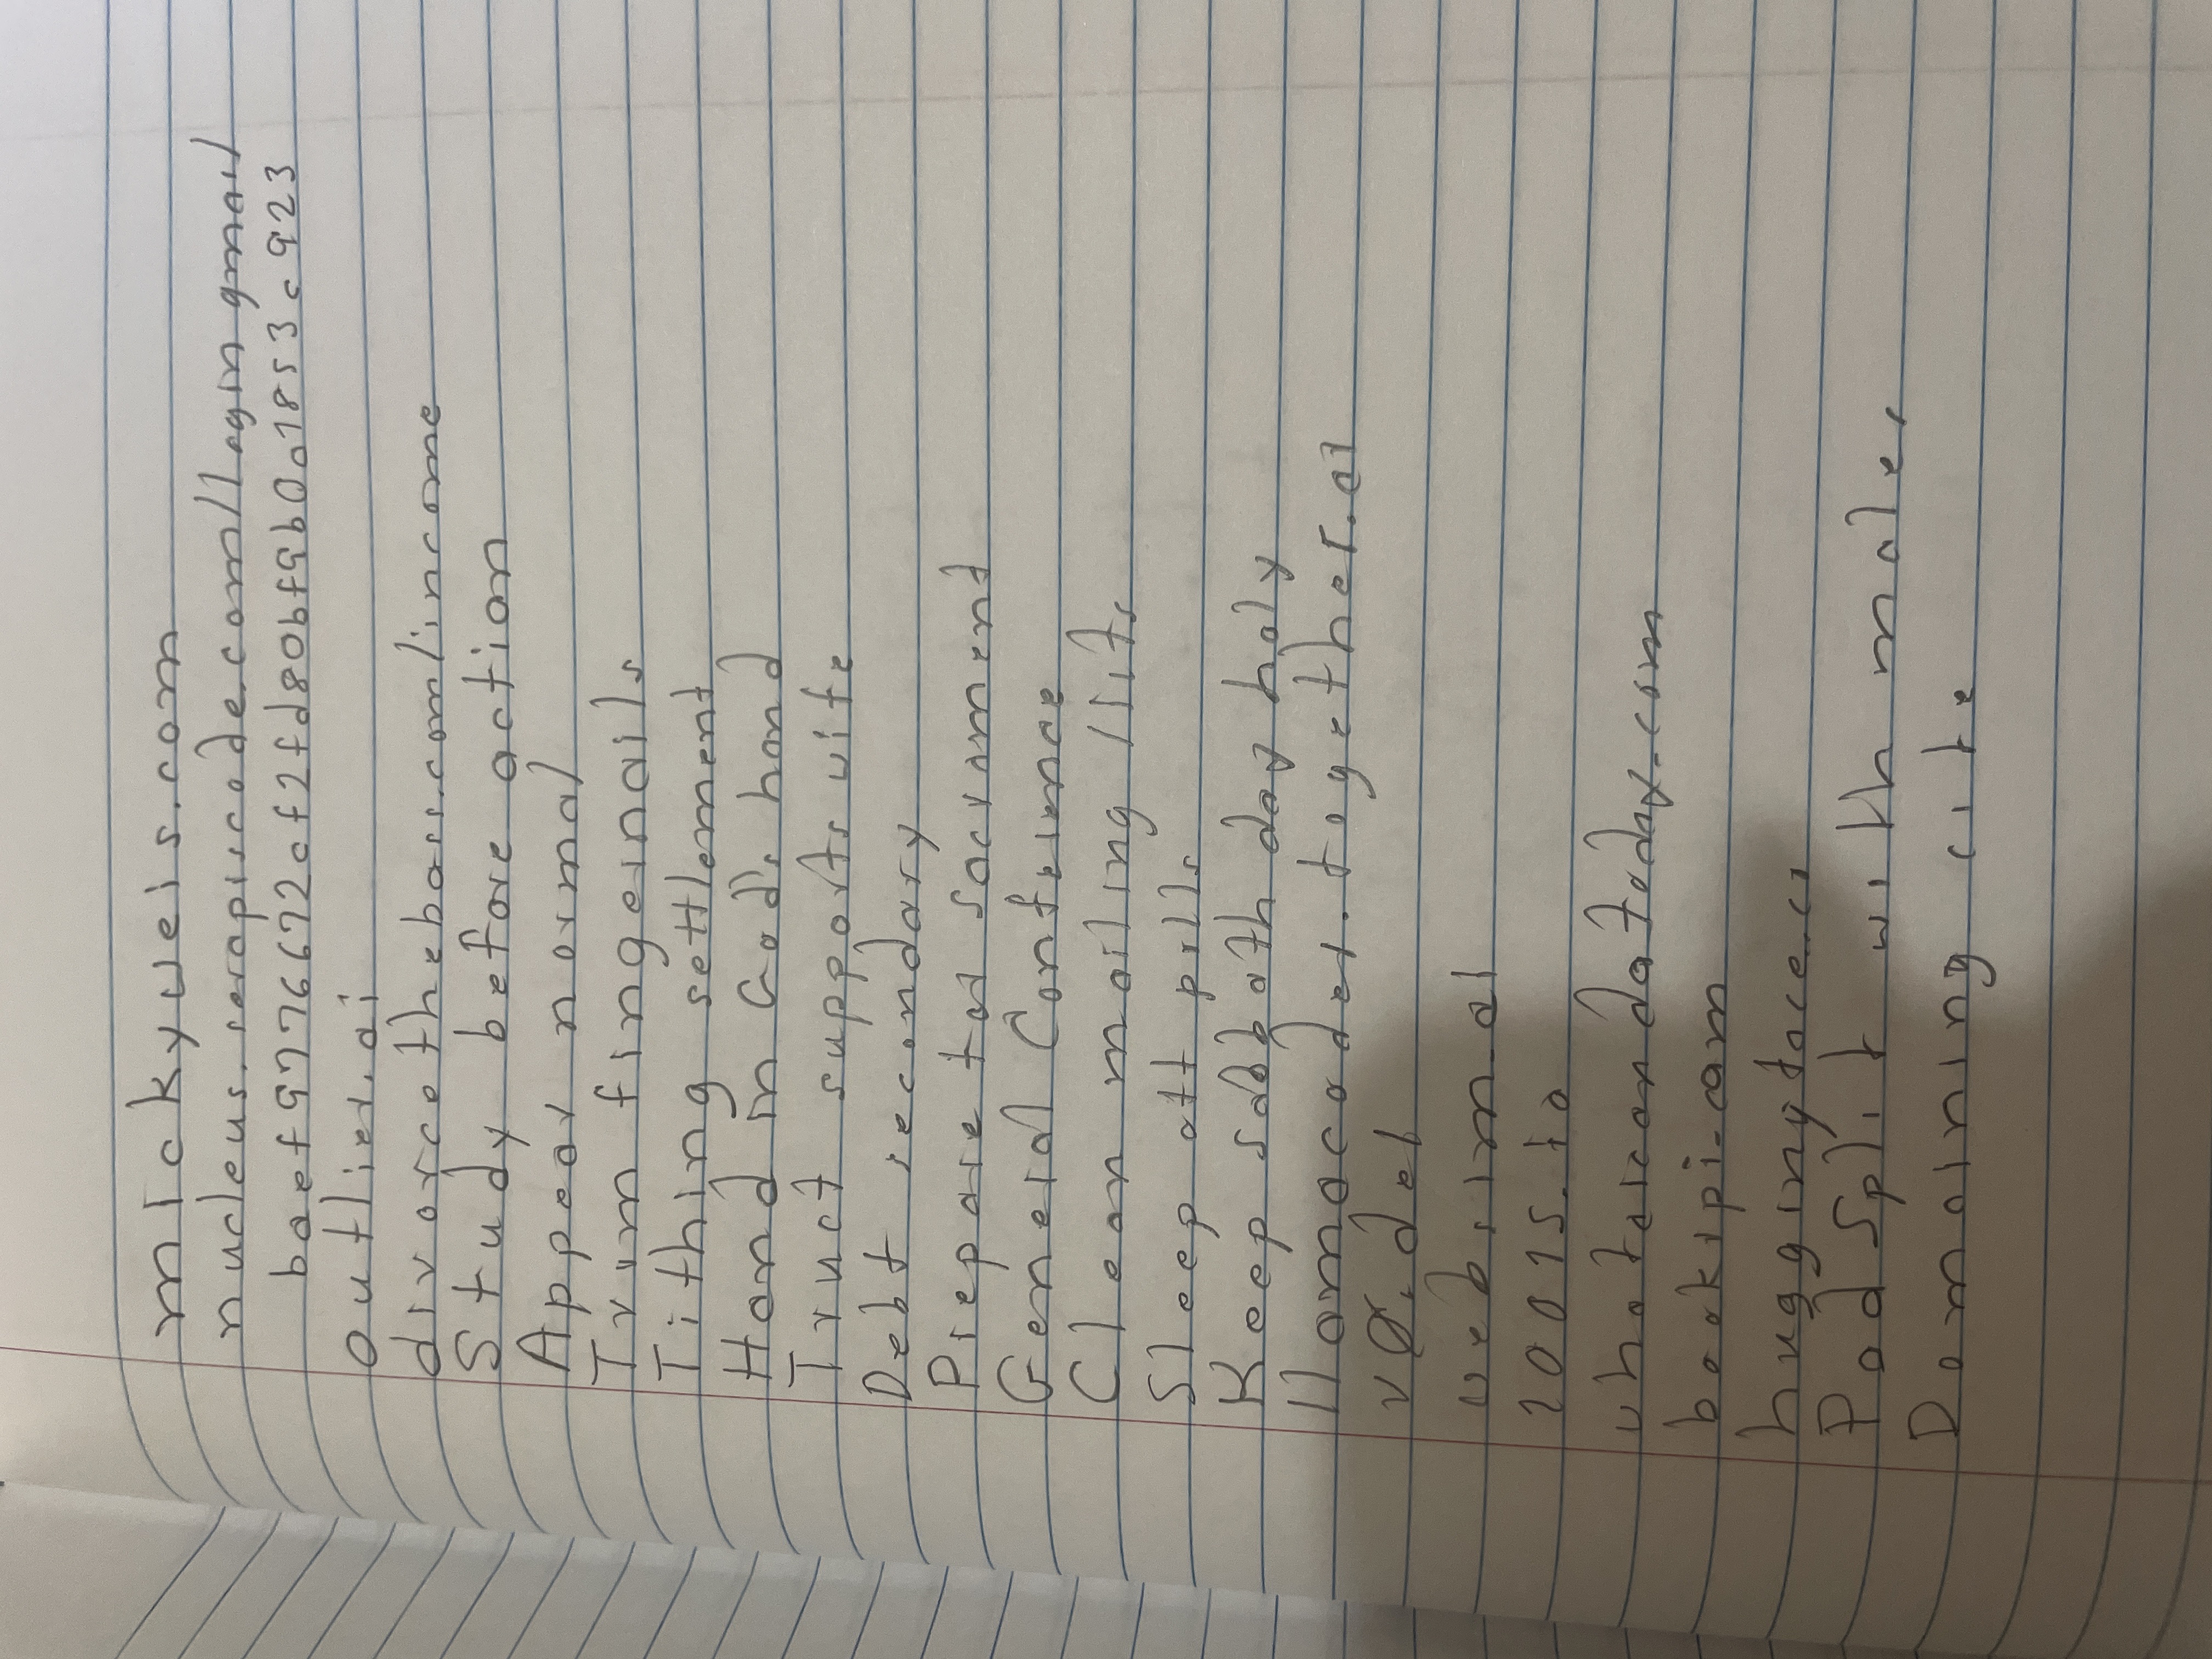 mickyweis.com
nucleus.serapiscode.com/login gmail
outlier.ai
divorcetheboss.com/income
Study before action
Appear normal
Trim fingernails
Tithing settlement
Hand in God's hand
Trust supports wife
Debt secondary
Prepare tad sacrament
General Conference
Clean mailing lists
Sleep off pills
Keep sabbath day holy
llamacoder.together.ai
v0.dev
websim.ai
20015.io
whatsicondatoday.com
bookipi.com
huggingface.co
PadSplit with males
Domaining cite